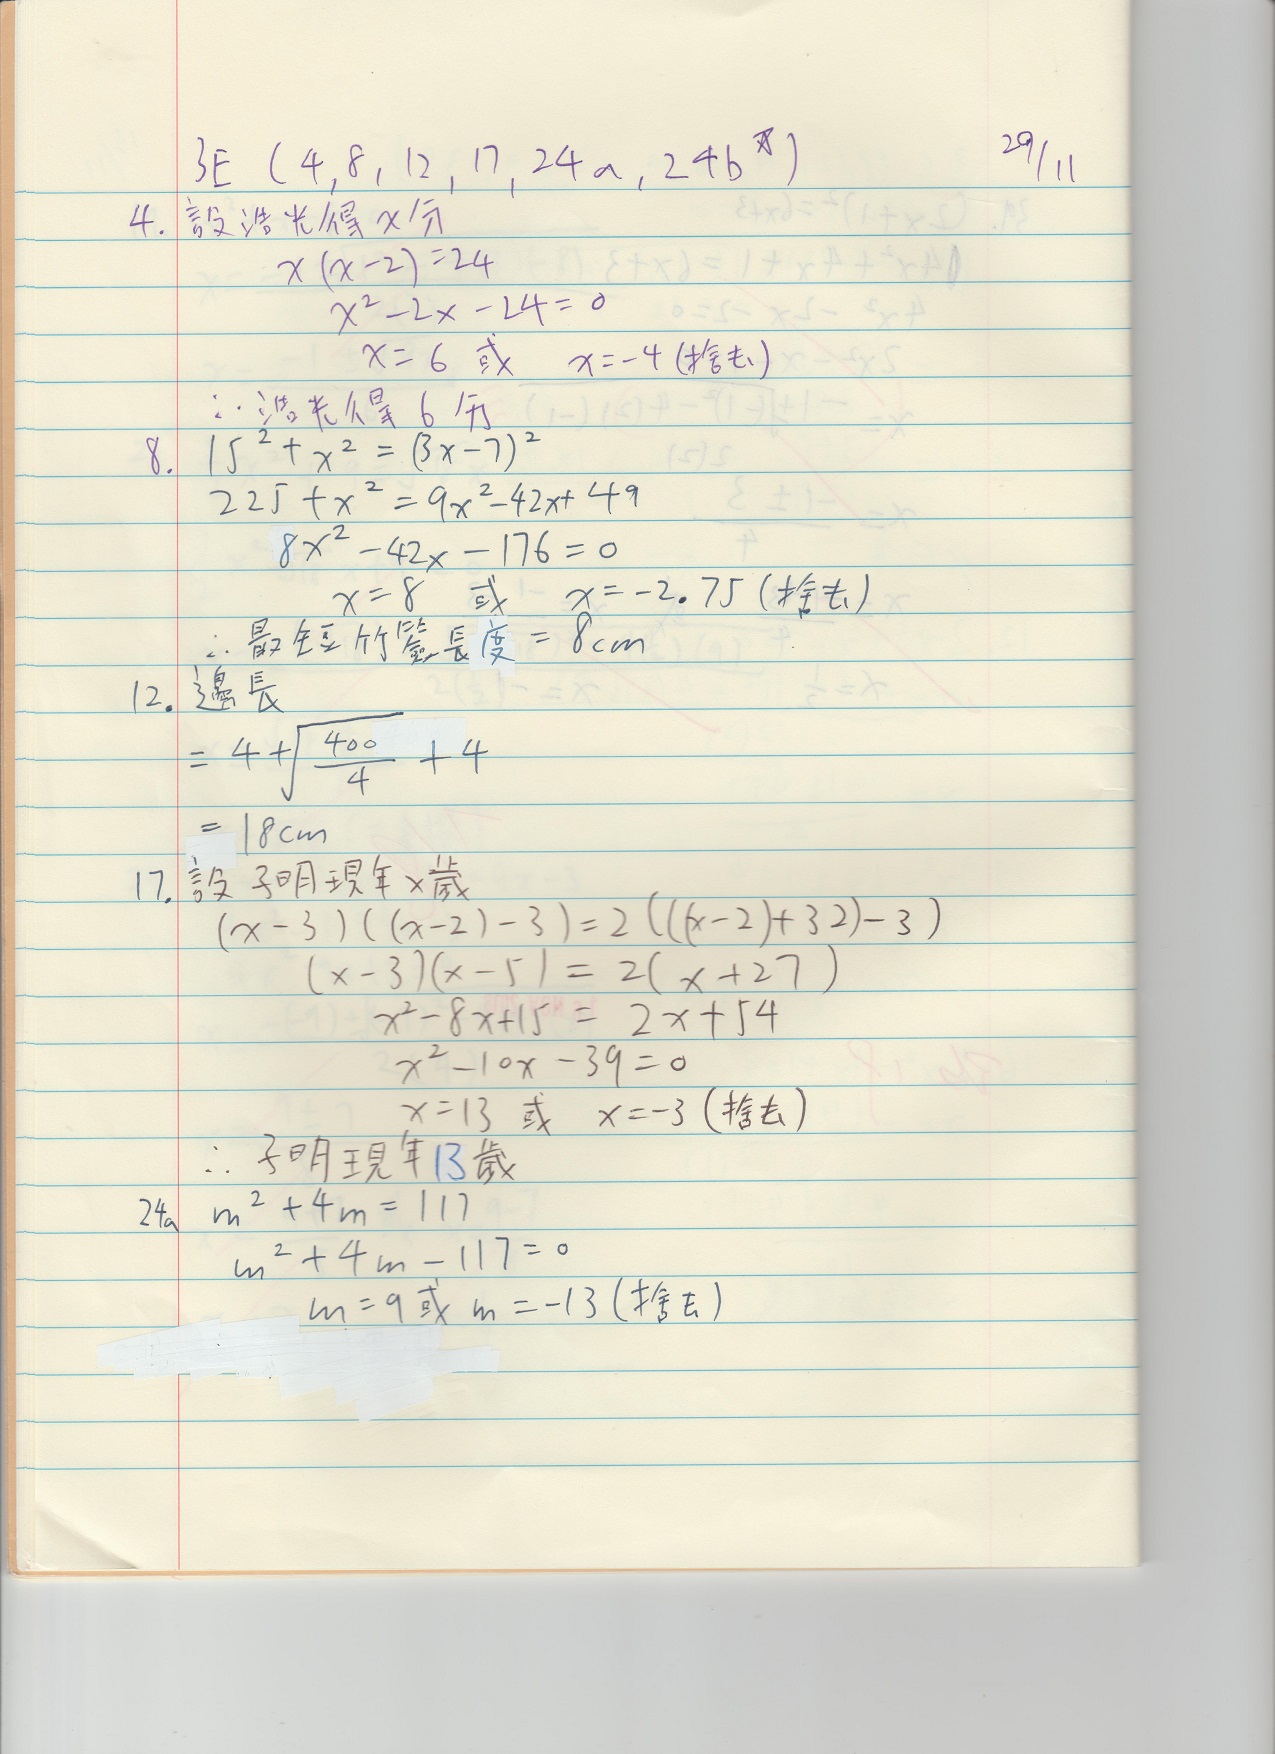 3E (4, 8, 12, 17, 24a, 24b*)
29/11
4. 設浩光得x分
x(x-2)=24
x²-2x-24=0
x=6 或 x=-4 (捨去)
∴浩光得6分
8. 15²+x²=(3x-7)²
225+x²=9x²-42x+49
8x²-42x-176=0
x=8 或 x=-2.75 (捨去)
∴最短竹籤長度=8cm
12. 邊長
=4+√(400/4)+4
=18cm
17. 設子明現年x歲
(x-3)((x-2)-3)=2(((x-2)+32)-3)
(x-3)(x-5)=2(x+27)
x²-8x+15=2x+54
x²-10x-39=0
x=13 或 x=-3 (捨去)
∴子明現年13歲
24a m²+4m=117
m²+4m-117=0
m=9 或 m=-13 (捨去)